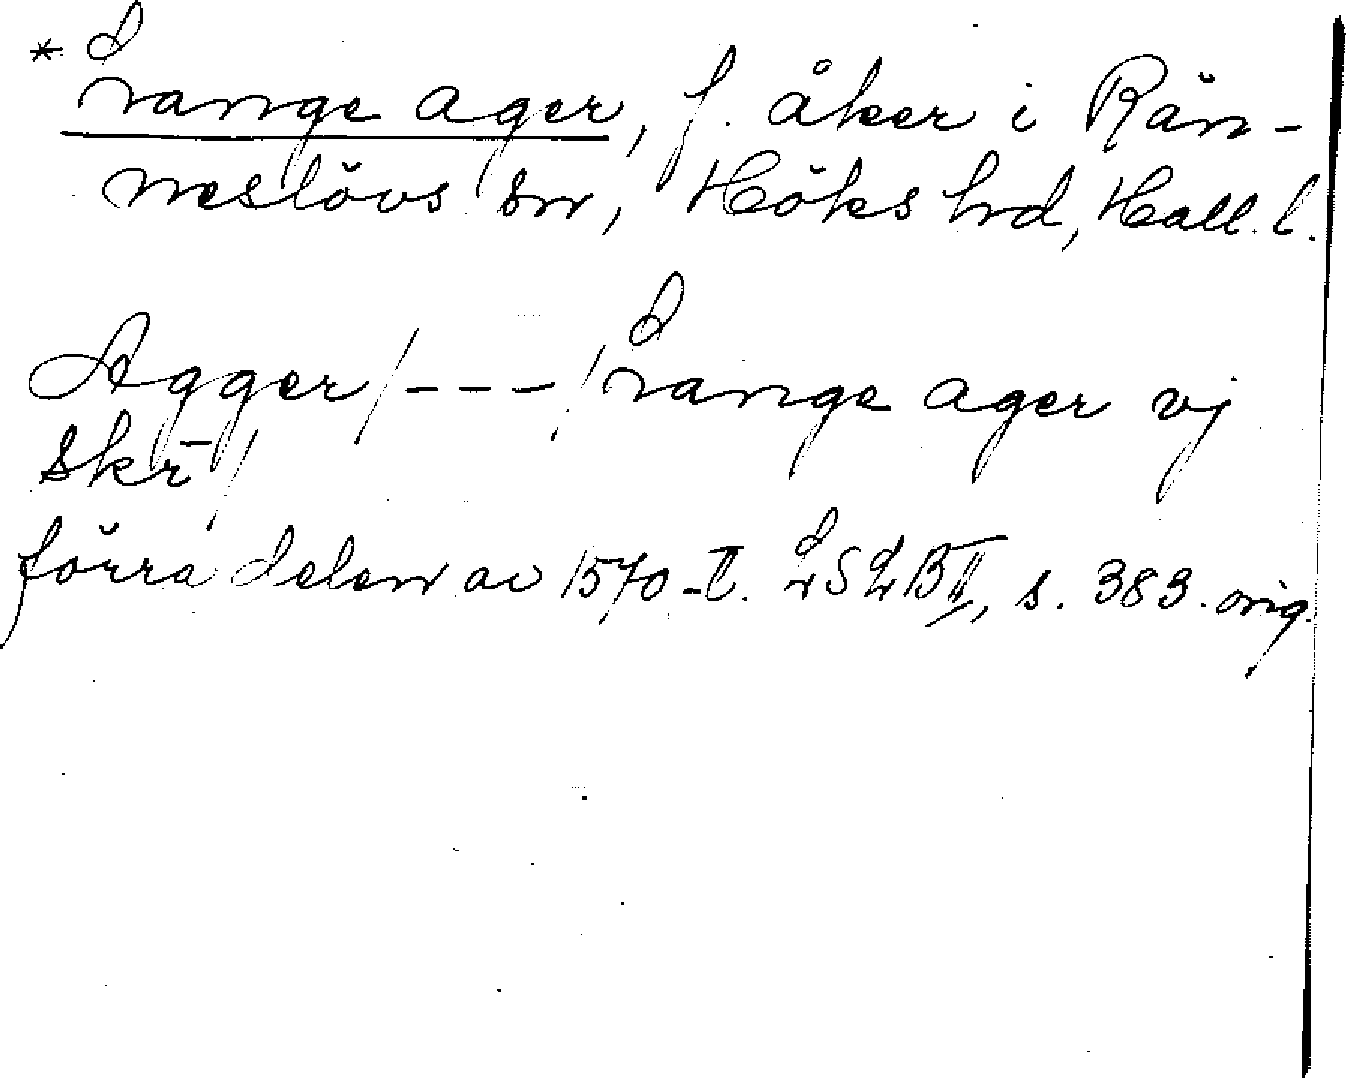 * Lange ager, f. åker i Rän-
neslövs sn, Höks hd, Hall. l.
Agger /---/ Lange ager vj
skr̄ /
förra delen av 1570-t. LSLB II, s. 383. orig.